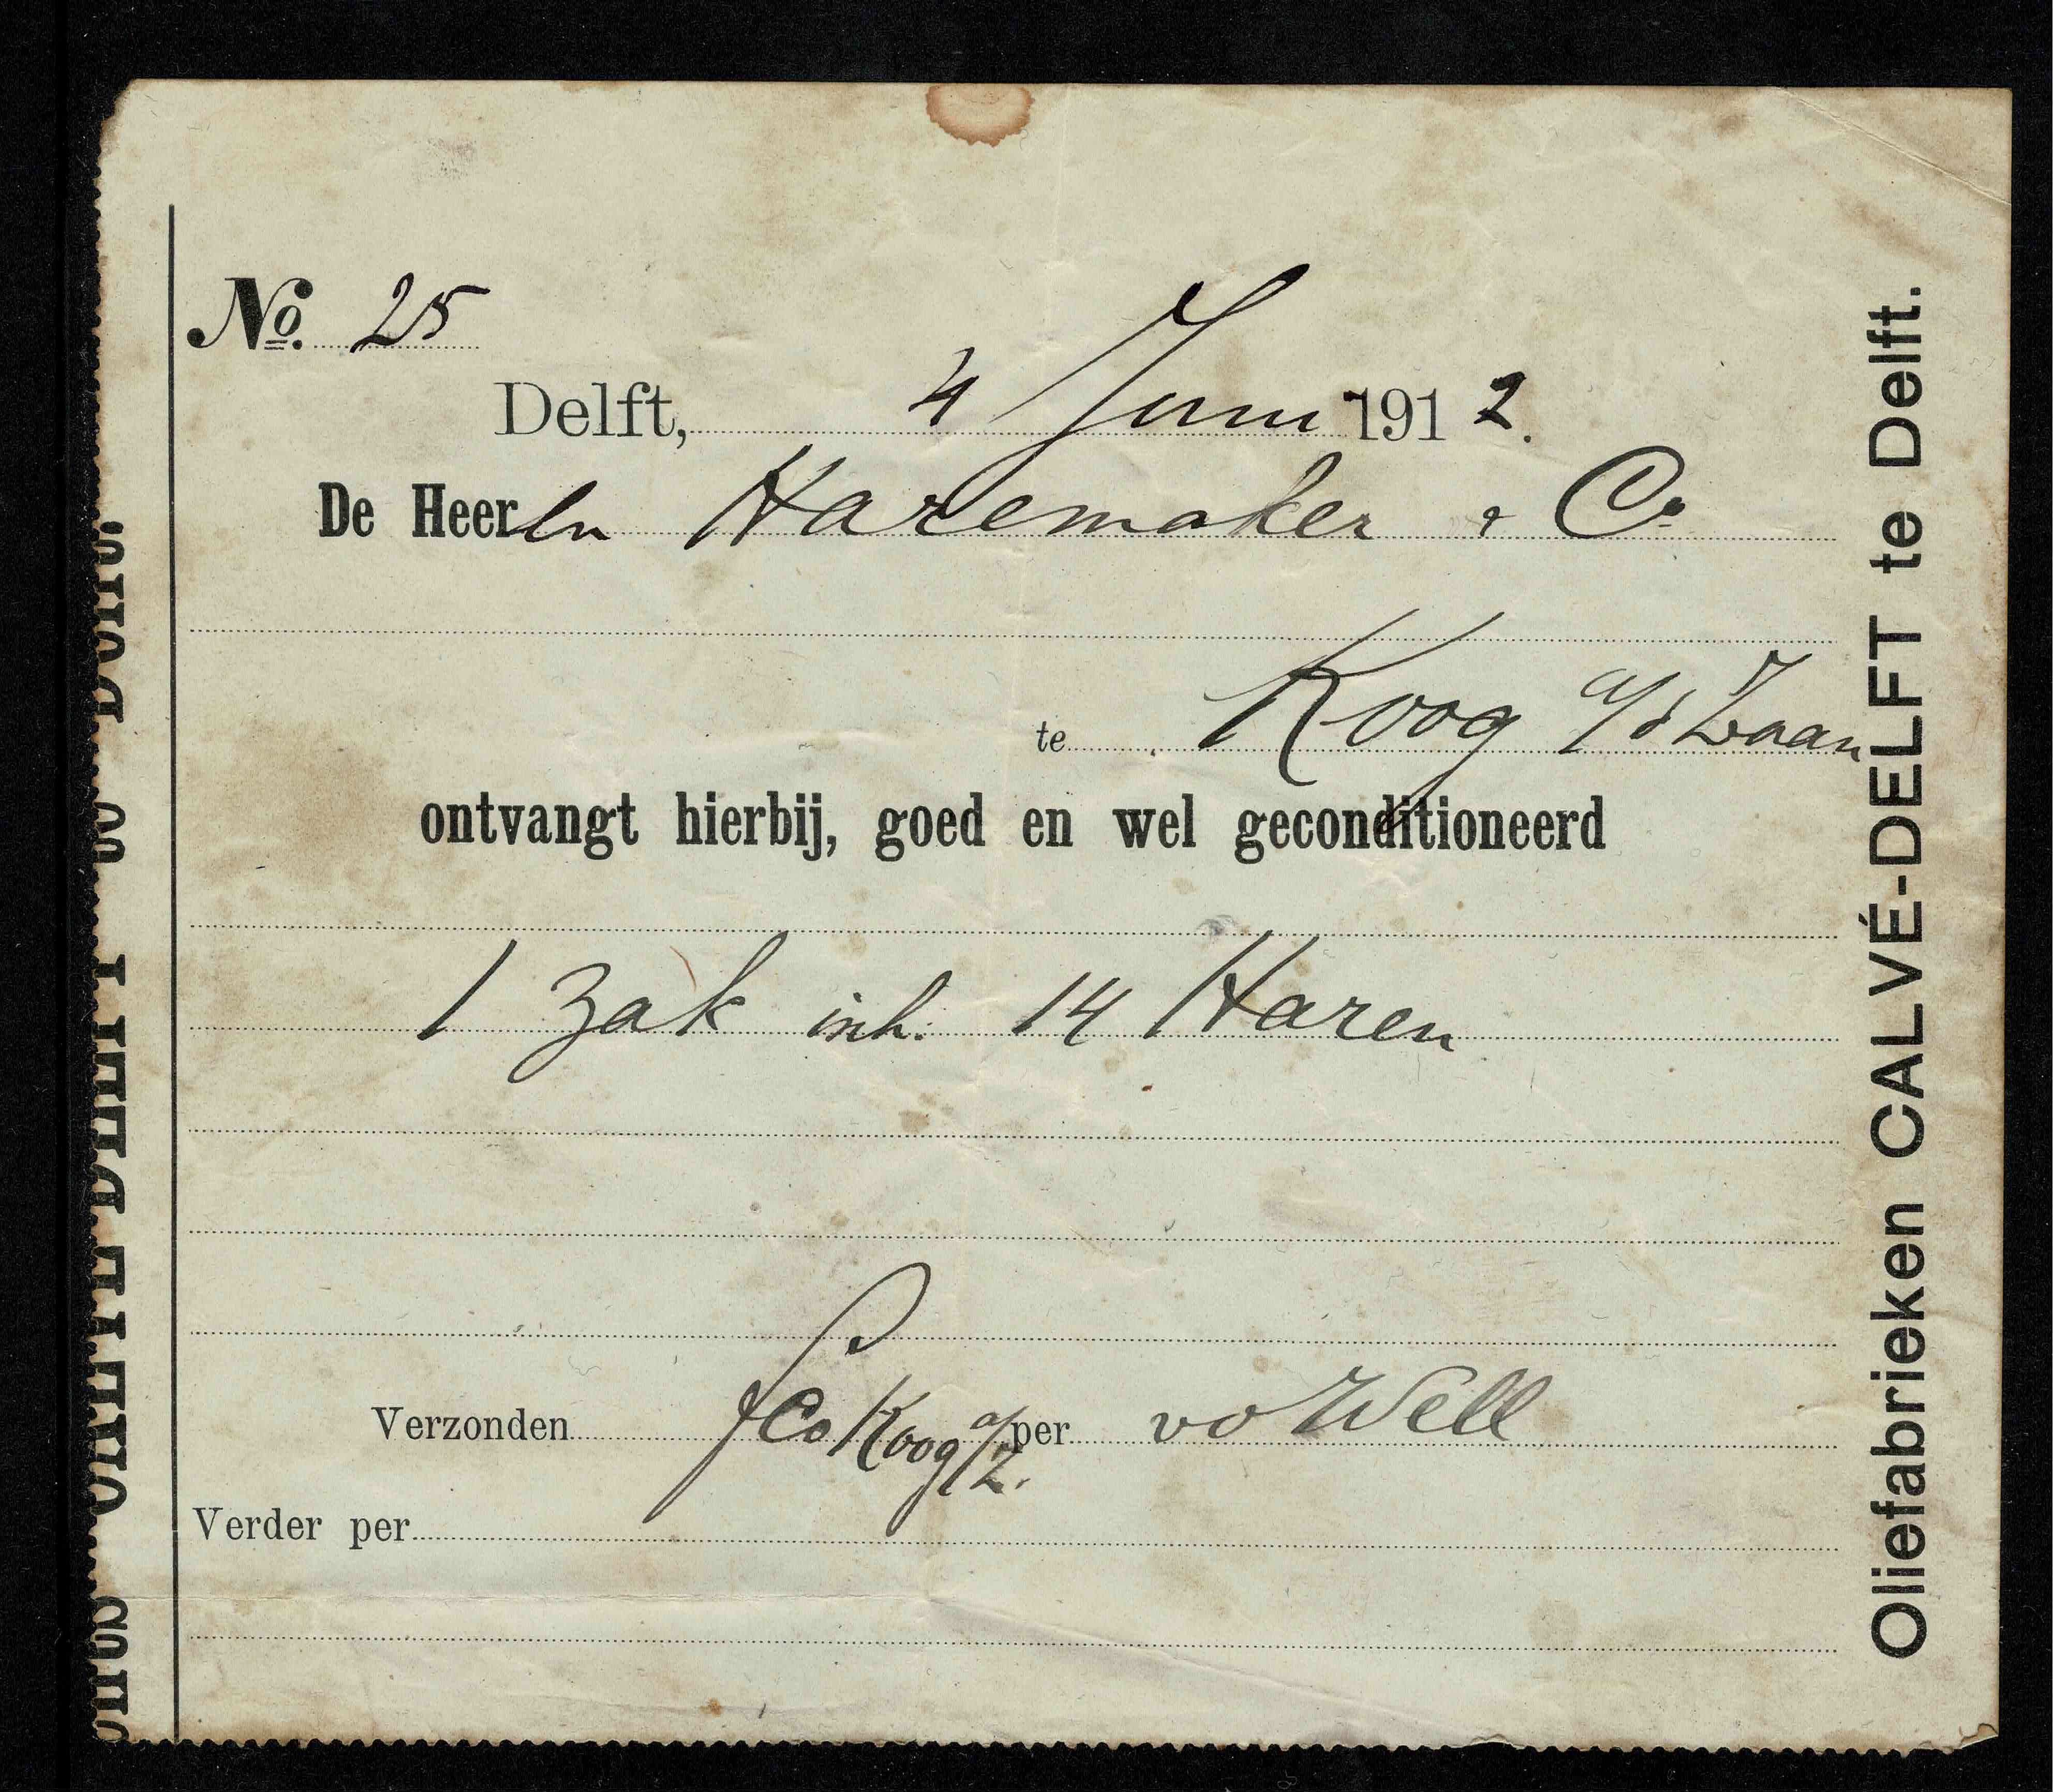 No. 25
Delft, 4 Juni 1912.
De Heeren Haremaker & Co
te Koog a/d Zaan
ontvangt hierbij, goed en wel geconditioneerd
1 zak inh. 14 Haren
Verzonden fco Koog a/Z. per vo Well
Verder per
Oliefabrieken CALVÉ-DELFT te Delft.